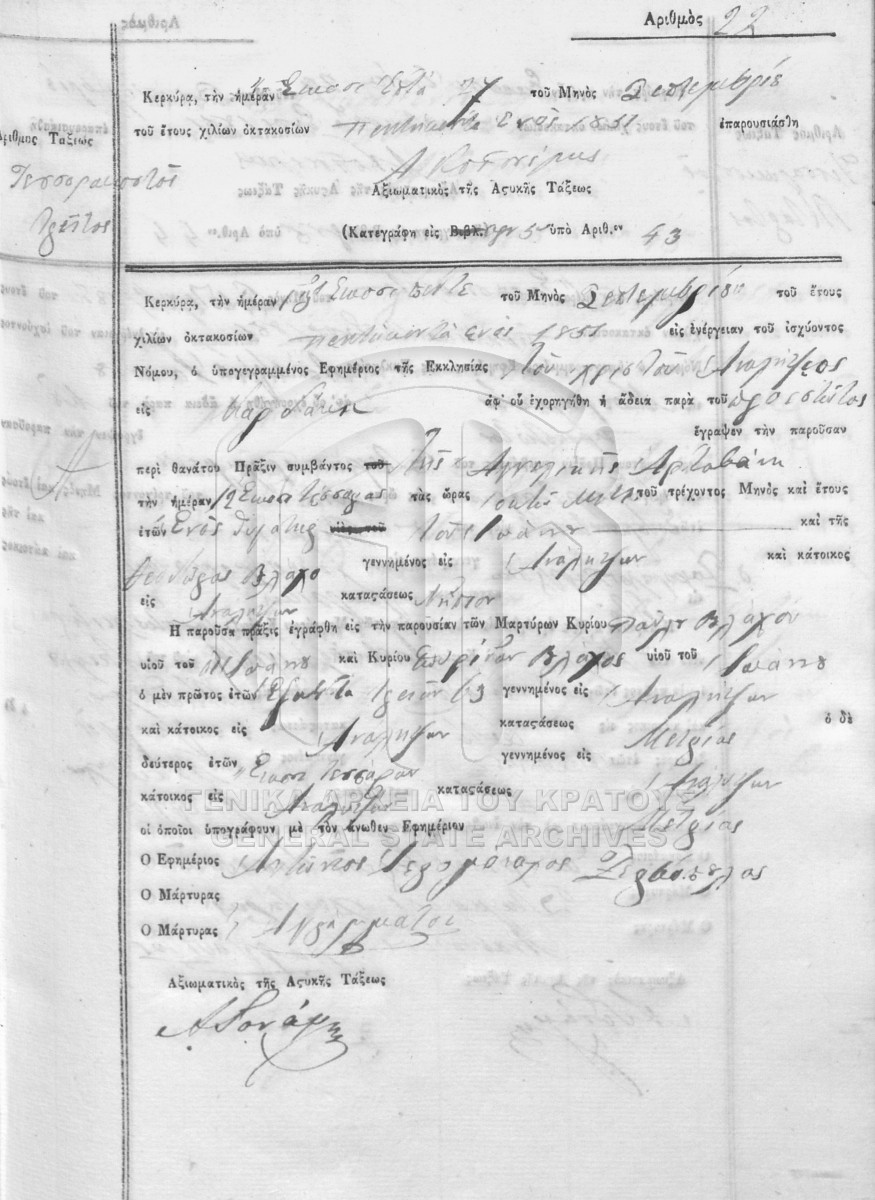 Ἀριθμὸς 22
Κερκύρα, τὴν ἡμέραν Εικοσι Επτά 27 τοῦ Μηνὸς Σεπτεμβρίε
τοῦ ἔτους χιλίων ὀκτακοσίων πεντήκοντα ενός 1851 ἐπαρουσιάσθη
Ἀριθμὸς Τάξεως
Τεσσαρακοστὸς
τρίτος
Α
Ἀξιωματικὸς τῆς Ἀςυκῆς Τάξεως
(Κατεγράφη εἰς Βιβλ. 5 ὑπὸ Ἀριθ.ον 43
Κερκύρα, τὴν ἡμέραν Εικοσι πεντε τοῦ Μηνὸς Σεπτεμβρίου τοῦ ἔτους
χιλίων ὀκτακοσίων πεντήκοντα ενός 1851 εἰς ἐνέργειαν τοῦ ἰσχύοντος
Νόμου, ὁ ὑπογεγραμμένος Ἐφημέριος τῆς Ἐκκλησίας τοῦ Χριστοῦ Αναλήψεος
εἰς ἀφ' οὗ ἐχορηγήθη ἡ ἄδεια παρὰ τοῦ προεστῶτος
ἔγραψεν τὴν παροῦσαν
περὶ θανάτου Πρᾶξιν συμβάντος τοῦ της Αγγελικῆς Αρταβάνη
τὴν ἡμέραν Εικοσι τέσσαρας τὰς ὥρας τοῦ τρέχοντος Μηνὸς καὶ ἔτους
ἐτῶν Ενὸς θυγάτηρ υἱὸς τοῦ τοῦ Ιωάννου καὶ τῆς
Θεοδώρας Βλάχο γεννημένος εἰς Αναληψην καὶ κάτοικος
εἰς Αναληψην καταςάσεως Νήπιον
Ἡ παροῦσα πρᾶξις ἐγράφθη εἰς τὴν παρουσίαν τῶν Μαρτύρων Κυρίου Παύλου Βλάχου
υἱοῦ τοῦ Ιωάννου καὶ Κυρίου Σπυρίδων Βλάχος υἱοῦ τοῦ Ιωάννου
ὁ μὲν πρῶτος ἐτῶν Εξηντα τριῶν 63 γεννημένος εἰς Αναληψην
καὶ κάτοικος εἰς Αναληψην καταςάσεως Μετρίας ὁ δὲ
δεύτερος ἐτῶν Εικοσι τεσσάρων γεννημένος εἰς Αναληψην
κάτοικος εἰς Αναληψην καταςάσεως Μετρίας
οἱ ὁποῖοι ὑπογράφουν μὲ τὸν ἄνωθεν Ἐφημέριον
Ὁ Ἐφημέριος Αντώνιος Ιερομόναχος
Ὁ Μάρτυρας
Ὁ Μάρτυρας Αγράμματοι
Ἀξιωματικὸς τῆς Ἀςυκῆς Τάξεως
ΓΕΝΙΚΑ ΑΡΧΕΙΑ ΤΟΥ ΚΡΑΤΟΥΣ
GENERAL STATE ARCHIVES